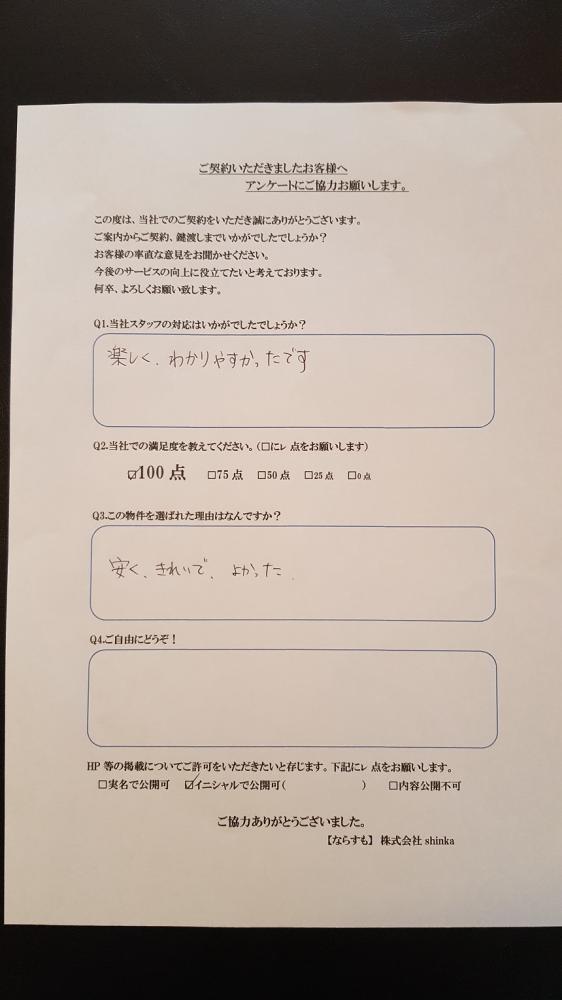 ご契約いただきましたお客様へ
アンケートにご協力お願いします。
この度は、当社でのご契約をいただき誠にありがとうございます。
ご案内からご契約、鍵渡しまでいかがでしたでしょうか？
お客様の率直な意見をお聞かせください。
今後のサービスの向上に役立てたいと考えております。
何卒、よろしくお願い致します。
Q1.当社スタッフの対応はいかがでしたでしょうか？
楽しく、わかりやすかったです
Q2.当社での満足度を教えてください。（□にㇾ点をお願いします）
☑100点 □75点 □50点 □25点 □0点
Q3.この物件を選ばれた理由はなんですか？
安く、きれいで、よかった.
Q4.ご自由にどうぞ！
HP等の掲載についてご許可をいただきたいと存じます。下記にㇾ点をお願いします。
□実名で公開可 ☑イニシャルで公開可（ ） □内容公開不可
ご協力ありがとうございました。
【ならすも】 株式会社 shinka